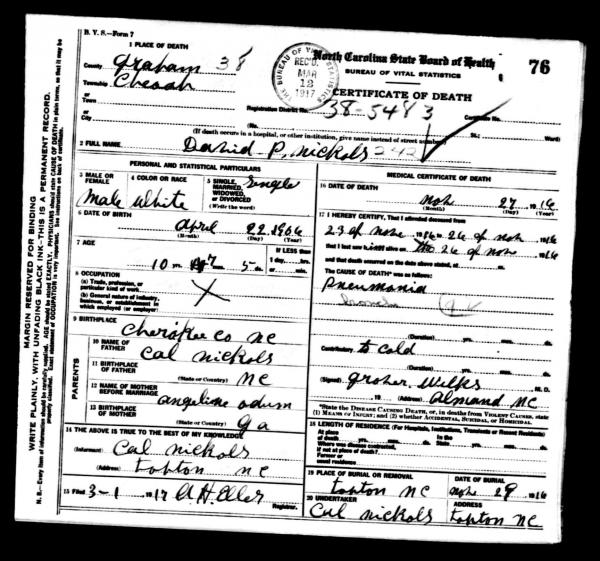 B. V. S.—Form 7
North Carolina State Board of Health
76
BUREAU OF VITAL STATISTICS
CERTIFICATE OF DEATH
THE BUREAU OF VITAL STATISTICS
REC'D.
MAR
13
1917
1 PLACE OF DEATH
County Graham 38
Township Cheoah
or
Town
or
City
Registration District No. 38-5483 Certificate No.
(No. St.; Ward)
(If death occurs in a hospital, or other institution, give name instead of street number)
2 FULL NAME David P, nickols 242
PERSONAL AND STATISTICAL PARTICULARS
3 MALE OR FEMALE
male
4 COLOR OR RACE
white
5 SINGLE, MARRIED, WIDOWED, or DIVORCED
(Write the word)
Single
6 DATE OF BIRTH
April 22, 1906
(Month) (Day) (Year)
7 AGE
10 yrs. 7 5 ds.
If LESS than
1 day, hrs.
or min.
8 OCCUPATION
(a) Trade, profession, or
particular kind of work
(b) General nature of industry,
business, or establishment in
which employed (or employer)
X
9 BIRTHPLACE
Cherokee co NC
PARENTS
10 NAME OF FATHER
Cal nickols
11 BIRTHPLACE OF FATHER
(State or Country) NC
12 NAME OF MOTHER BEFORE MARRIAGE
angeline odum
13 BIRTHPLACE OF MOTHER
(State or Country) Ga
14 THE ABOVE IS TRUE TO THE BEST OF MY KNOWLEDGE
(Informant) Cal nickols
(Address) topton NC
15 Filed 3-1 1917 A H. Eller
Registrar.
MEDICAL CERTIFICATE OF DEATH
16 DATE OF DEATH
nov 27 1916
(Month) (Day) (Year)
17 I HEREBY CERTIFY, That I attended deceased from
23 of nov 1916 to 26 of nov 1916
that I last saw alive on the 26 of nov 1916
and that death occurred on the date above stated, at m.
The CAUSE OF DEATH* was as follows:
Pneumonia
(Duration) yrs. mos. ds.
Contributory to cold
(Duration) yrs. mos. ds.
(Signed) Grover Wilkes M. D.
, 19 (Address) Almand NC
*State the DISEASE CAUSING DEATH, or, in deaths from VIOLENT CAUSES, state
(1) MEANS OF INJURY; and (2) whether ACCIDENTAL, SUICIDAL, or HOMICIDAL.
18 LENGTH OF RESIDENCE (For Hospitals, Institutions, Transients or Recent Residents)
At place of death yrs. mos. ds. In the State yrs. mos. ds.
Where was disease contracted,
if not at place of death?
Former or
usual residence
19 PLACE OF BURIAL OR REMOVAL
topton NC
DATE OF BURIAL
nov 29 1916
20 UNDERTAKER
Cal nickols
ADDRESS
topton NC
MARGIN RESERVED FOR BINDING
WRITE PLAINLY, WITH UNFADING BLACK INK—THIS IS A PERMANENT RECORD.
N. B.—Every item of information should be carefully supplied. AGE should be stated EXACTLY. PHYSICIANS should state CAUSE OF DEATH in plain terms, so that it may be
properly classified. Exact statement of OCCUPATION is very important. See instructions on back of certificate.